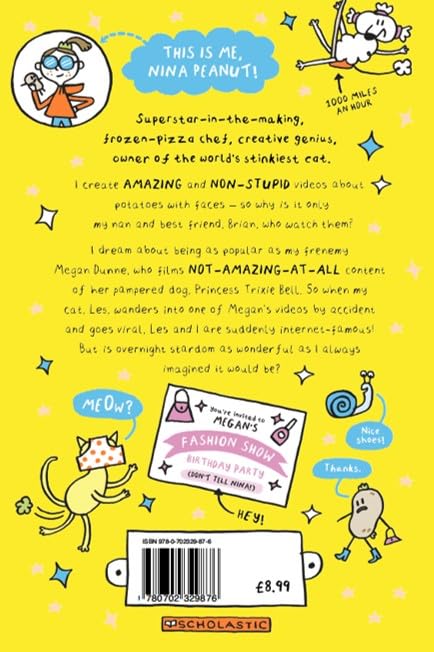 THIS IS ME,
NINA PEANUT!
1000 MILES
AN HOUR
Superstar-in-the-making,
frozen-pizza chef, creative genius,
owner of the world's stinkiest cat.
I create AMAZING and NON-STUPID videos about
potatoes with faces – so why is it only
my nan and best friend, Brian, who watch them?
I dream about being as popular as my frenemy
Megan Dunne, who films NOT-AMAZING-AT-ALL content
of her pampered dog, Princess Trixie Bell. So when my
cat, Les, wanders into one of Megan's videos by accident
and goes viral, Les and I are suddenly internet-famous!
But is overnight stardom as wonderful as I always
imagined it would be?
MEOw?
You're invited to
MEGAN'S
FASHION SHOW
BIRTHDAY PARTY
(DON'T TELL NINA!)
HEY!
Nice
shoes!
Thanks.
ISBN 978-0-702329-87-6
9 780702 329876
£8.99
SCHOLASTIC